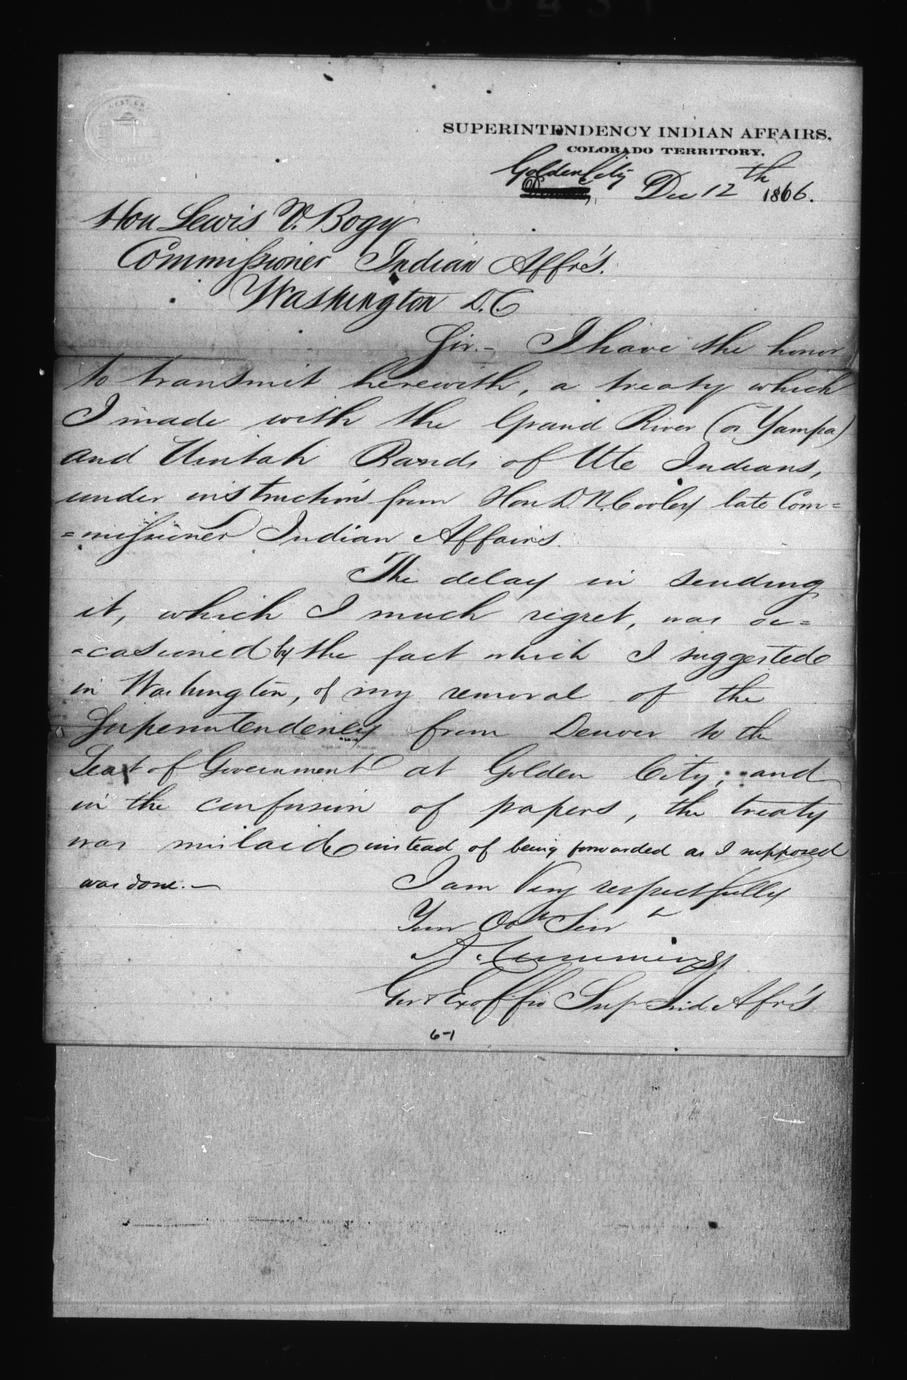 SUPERINTENDENCY INDIAN AFFAIRS,
COLORADO TERRITORY,
Golden City Dec 12th 1866.
Hon Lewis V. Bogy
Commissioner Indian Affrs.
Washington D.C
Sir.- I have the honor
to transmit herewith, a treaty which
I made with the Grand River (or Yampa)
and Uintah Bands of Ute Indians,
under instructions from Hon D. N. Cooley late Com=
=missioner Indian Affairs.
The delay in sending
it, which I much regret, was oc=
=casioned by the fact which I suggested
in Washington, of my removal of the
Superintendency from Denver to the
Seat of Government at Golden City; and
in the confusion of papers, the treaty
was mislaid instead of being forwarded as I supposed
was done.—
I am Very respectfully
Your Obt Servt
A. Cummings
Gov & Exoffio Sup Ind. Afrs
6-1